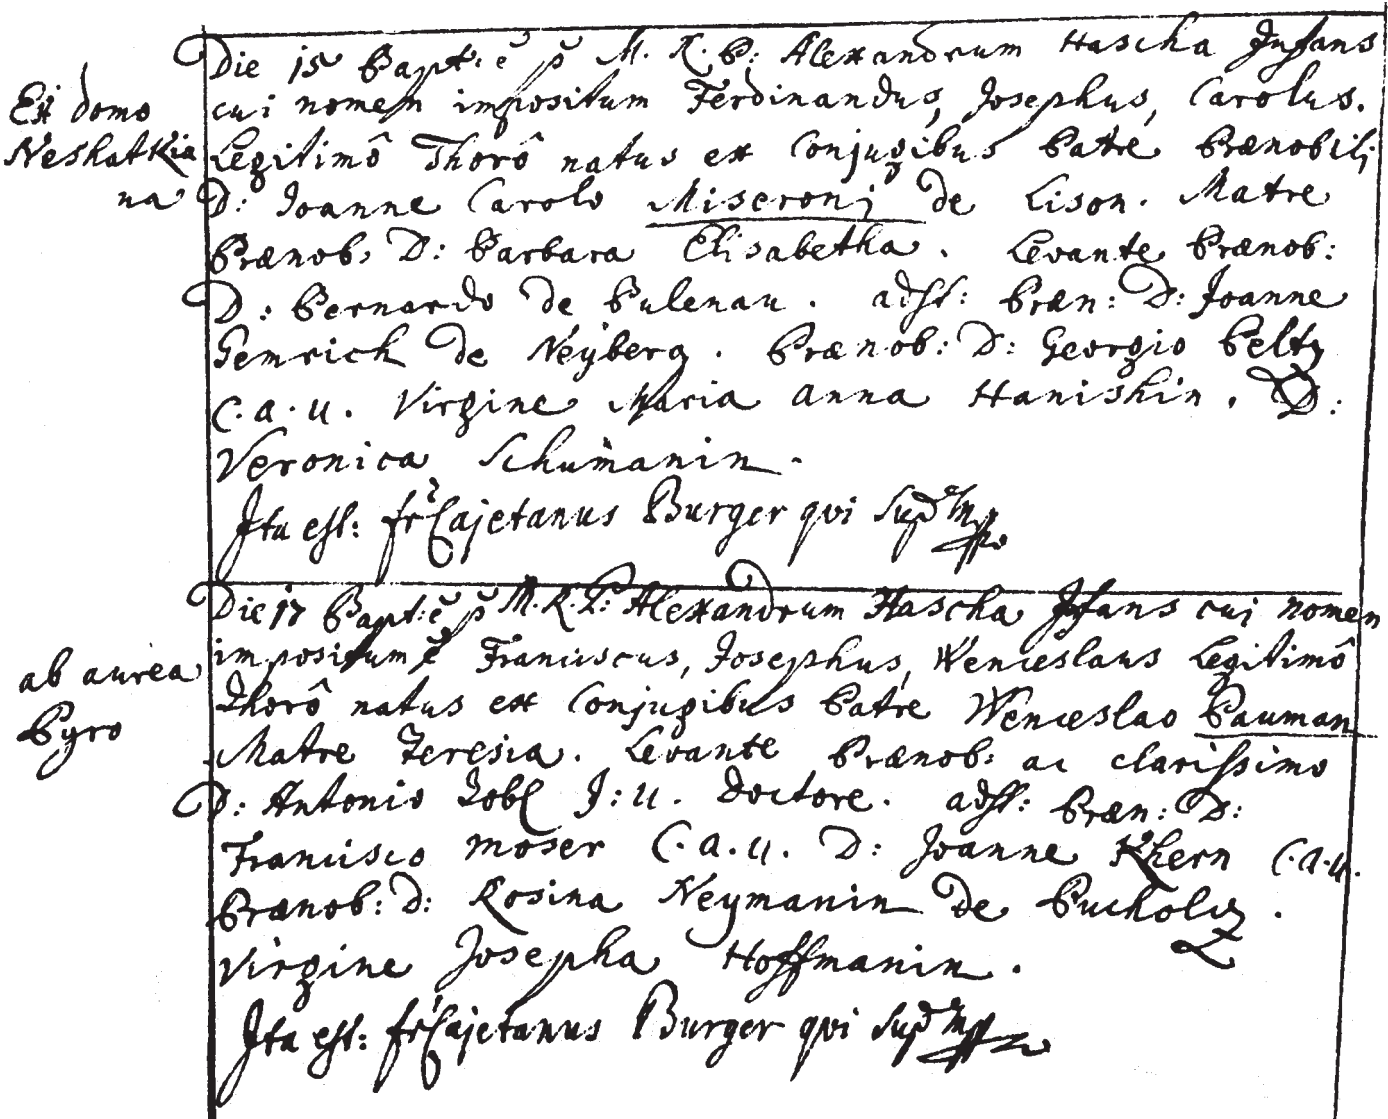 Die 15 Bapt: ē p M. R. P: Alexandrum Hascha Infans
Ex domo
cui nomen impositum Ferdinandus, Josephus, Carolus.
Neshatkia
Legitimô Thorô natus ex Conjugibus Patre Prænobili
na
D: Joanne Carolo Miseroni de Lison. Matre
Prænob. D: Barbara Elisabetha. Levante Prænob:
D: Bernardo de Bulenau. adst: Præn: D: Joanne
Gemrich de Neÿberg. Prænob: D: Georgio Peltz
C. a. u. Virgine Maria Anna Hanishin. D:
Veronica Schumanin.
Ita est: fr Cajetanus Burger qui sup
Die 17 Bapt: ē p M. R. P: Alexandrum Hascha Infans cui nomen
impositum ē Franciscus, Josephus, Wenceslaus Legitimô
ab aurea
Thorô natus ex Conjugibus Patre Wenceslao Pauman
Pyro
Matre Teresia. Levante Prænob: ac clarissimo
D: Antonio Zobl J: U. Doctore. adst: Præn: D:
Francisco Moser C. a. u. D: Joanne Khern C. a. u.
Prænob: D: Rosina Neymanin de Bucholcz.
Virgine Josepha Hoffmanin.
Ita est: fr Cajetanus Burger qui sup